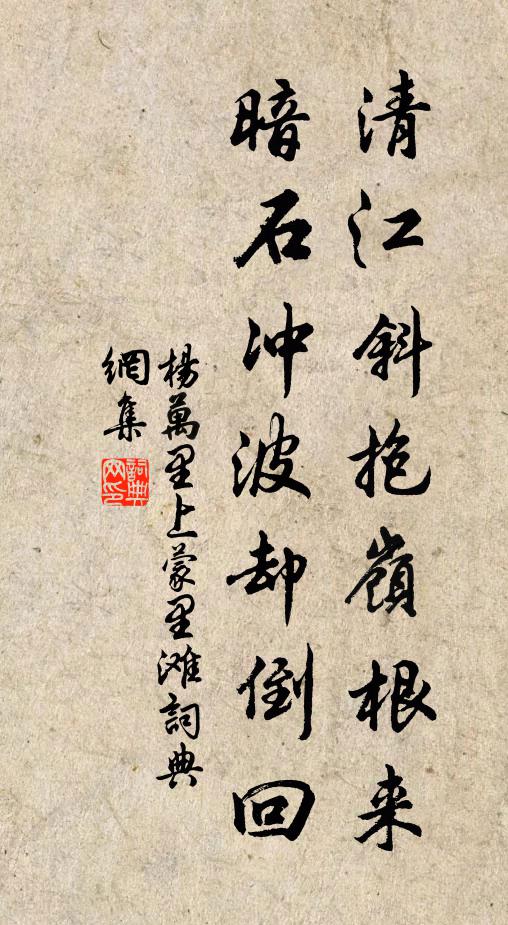 清江斜抱嶺根来
暗石冲波却倒回
楊萬里上蒙里滩詞典
網集
詞典網印